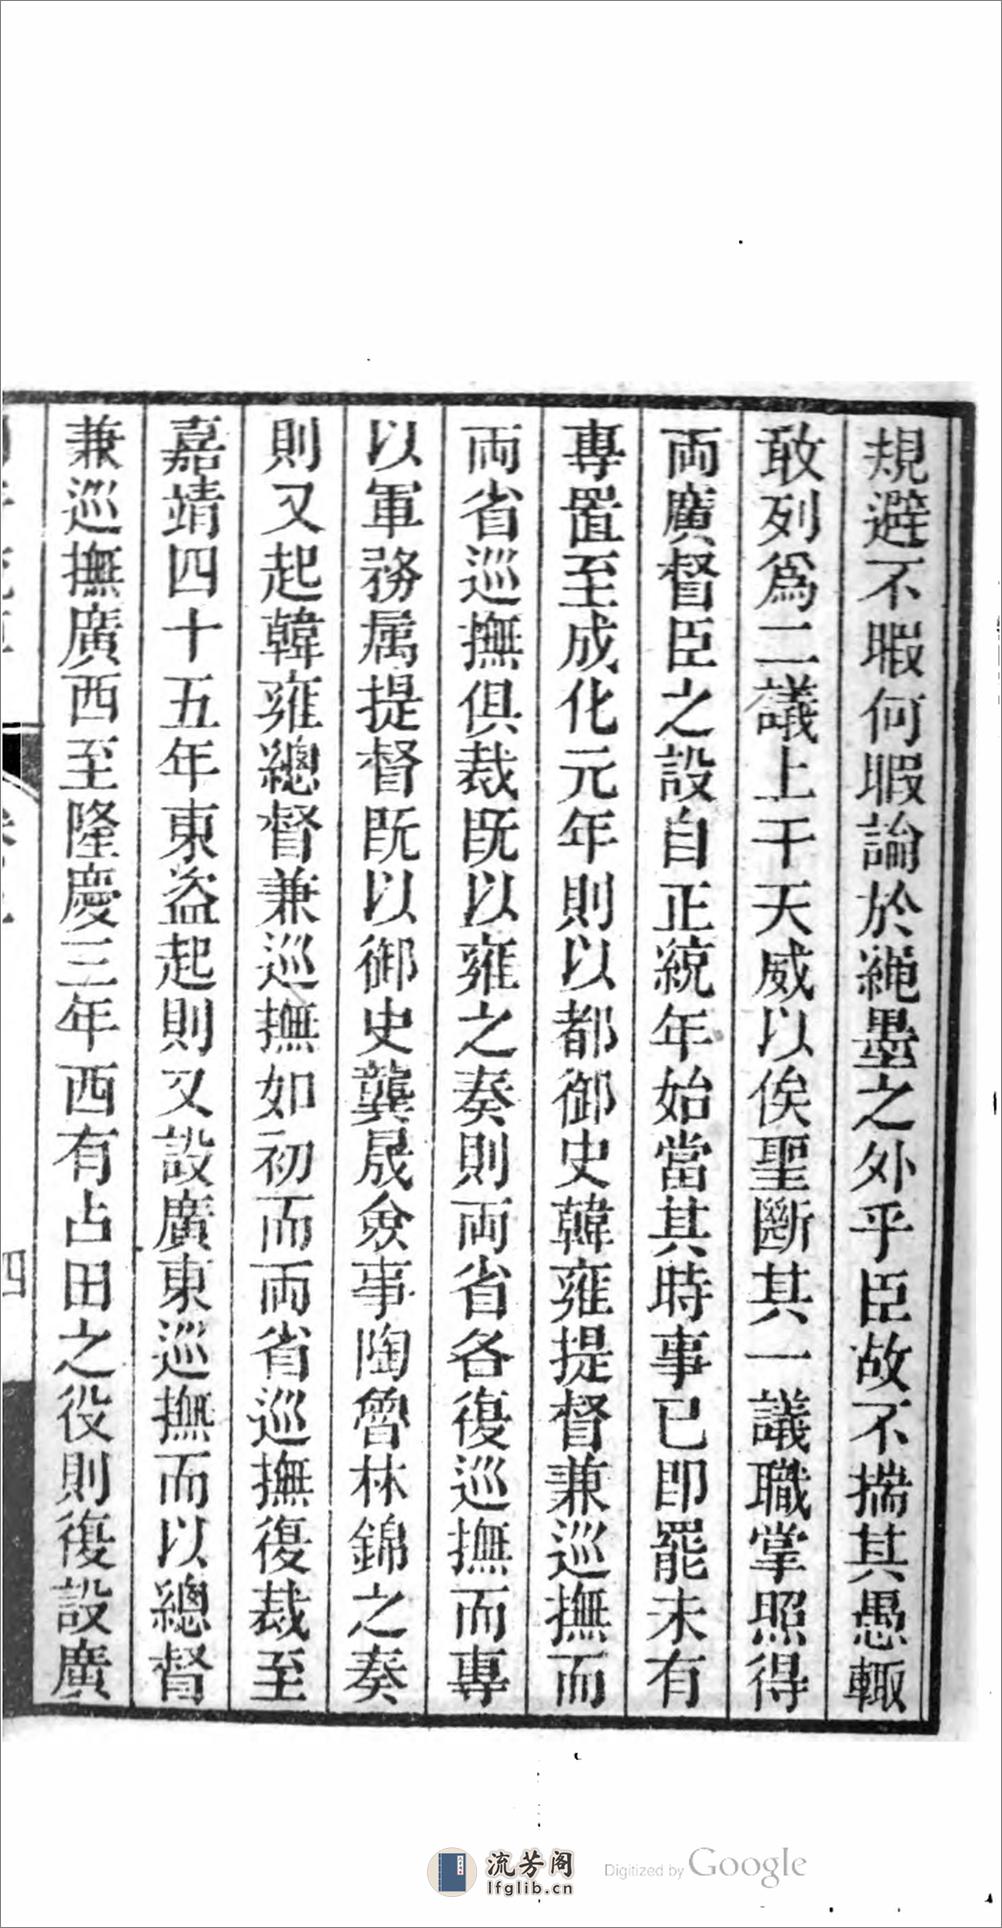 規避不暇何暇論於繩墨之外乎臣故不揣其愚輙
敢列爲二議上干天威以俟聖斷其一議職掌照得
両廣督臣之設自正統年始當其時事已即罷未有
專置至成化元年則以都御史韓雍提督兼巡撫而
両省巡撫俱裁既以雍之奏則両省各復巡撫而專
以軍務属提督既以御史龔晟僉事陶魯林錦之奏
則又起韓雍總督兼巡撫如初而両省巡撫復裁至
嘉靖四十五年東盜起則又設廣東巡撫而以總督
兼巡撫廣西至隆慶三年西有占田之役則復設廣
四
流芳阁
lfglib.cn
Digitized by Google